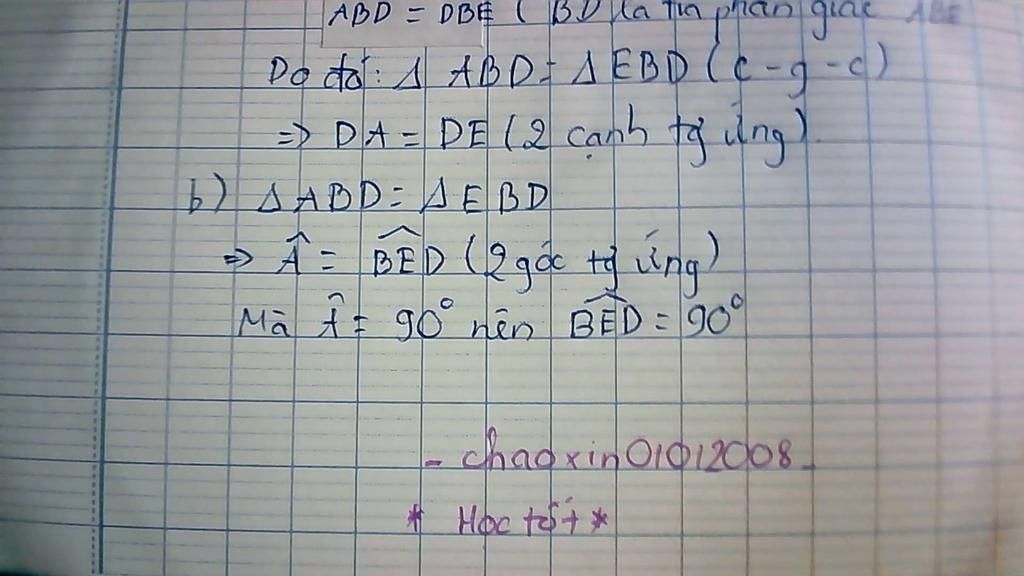 ABD = DBE ( BD là tia phân giác ABE
Do đó: Δ ABD = Δ EBD (c-g-c)
=> DA = DE (2 cạnh tg ứng).
b) Δ ABD = Δ EBD
=> Â = BÊD (2 góc tg ứng)
Mà Â = 90° nên BÊD = 90°
- chaoxin01012008 -
* Học tốt *